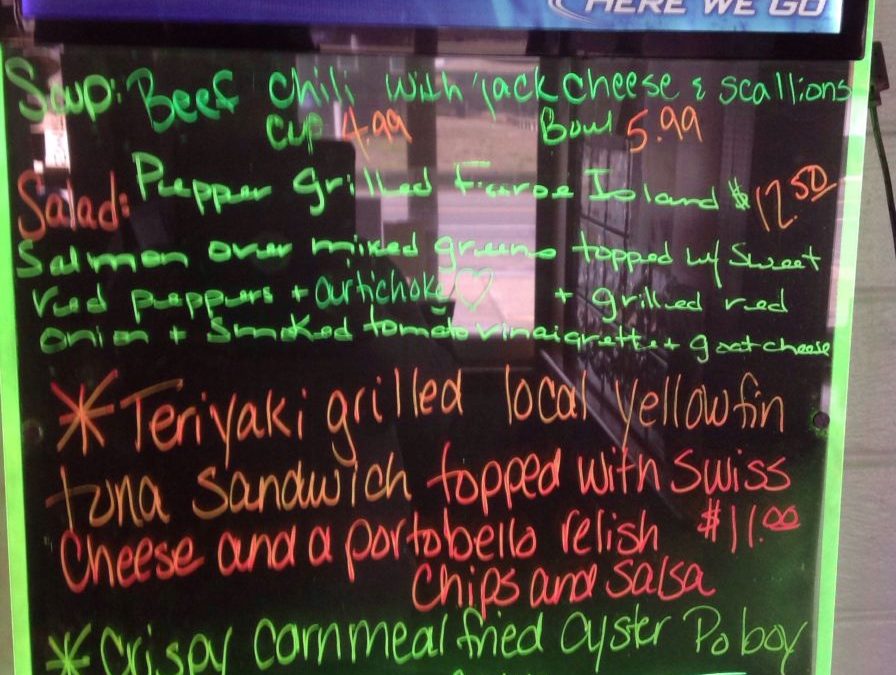 HERE WE GO
Soup: Beef chili with jack cheese & scallions
cup 4.99 Bowl 5.99
Salad: Pepper grilled Faroe Island $12.50
Salmon over mixed greens topped w/ Sweet
red peppers + artichoke ♡ + grilled red
onion + smoked tomato vinaigrette + goat cheese
* Teriyaki grilled local yellowfin
tuna sandwich topped with Swiss
Cheese and a portobello relish $11.00
Chips and Salsa
* Crispy Cornmeal fried Oyster Po boy